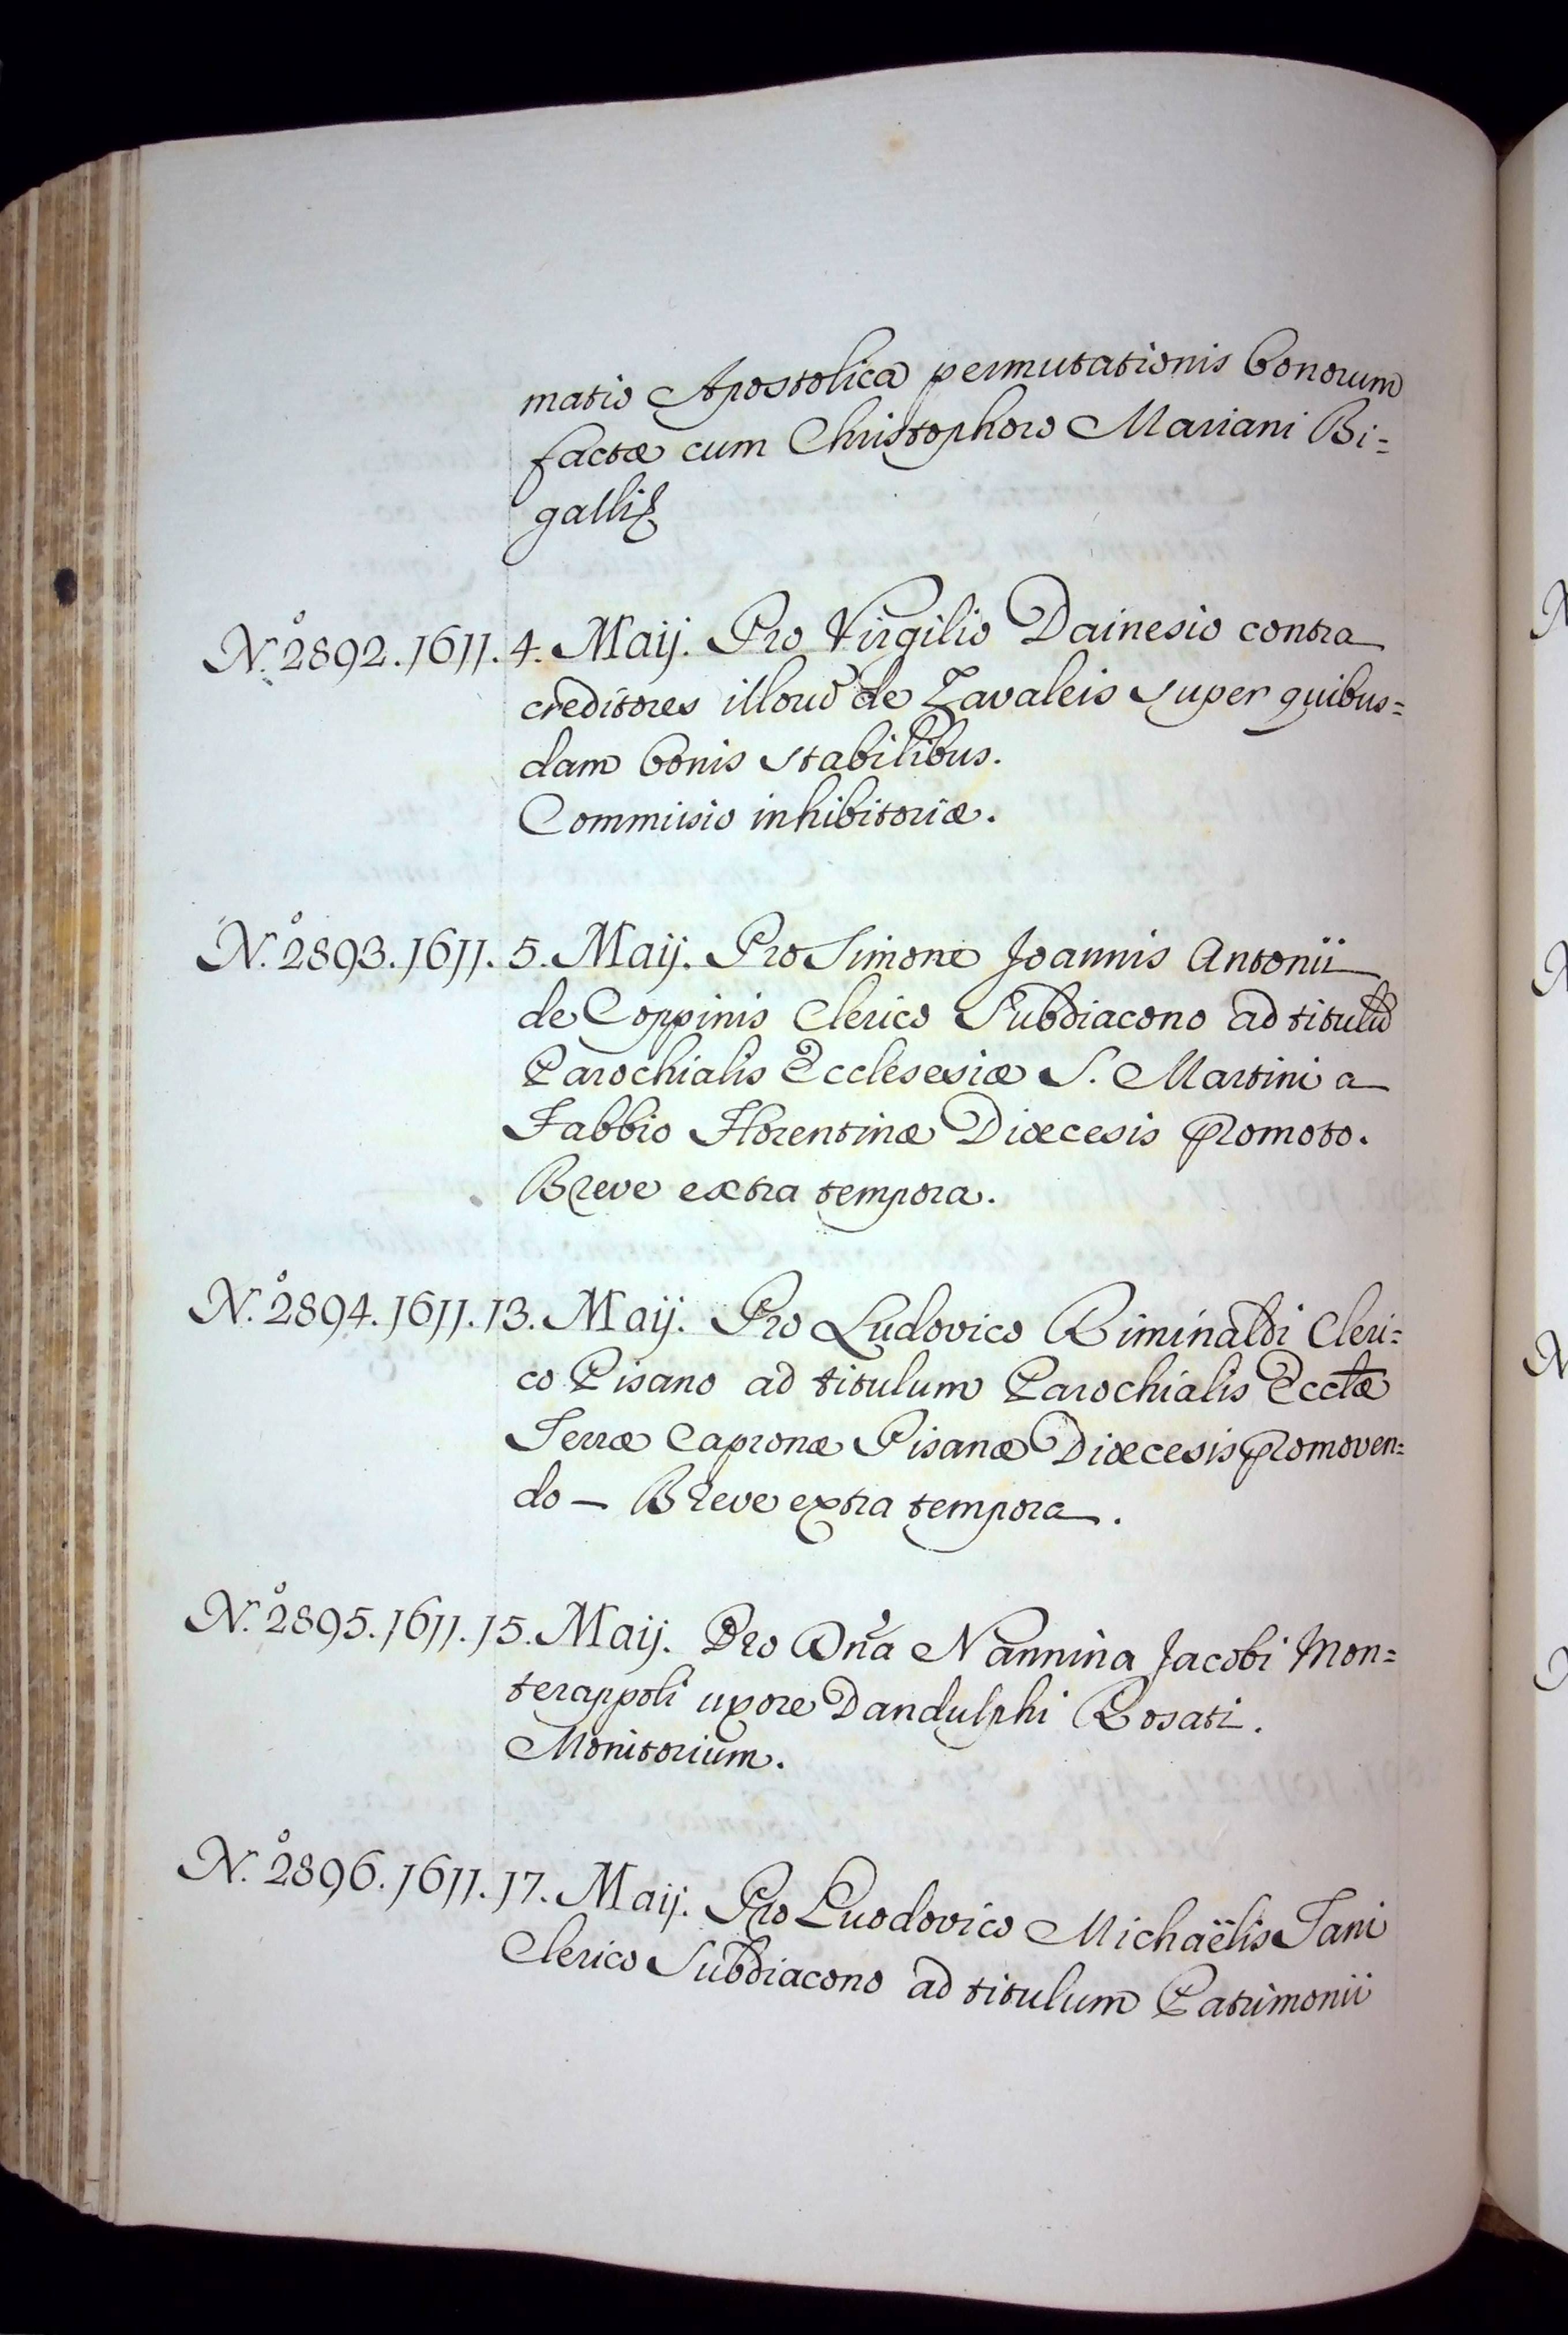 matio Apostolica permutationis bonorum
factæ cum Christophoro Mariani Bi=
gallis
N.º 2892. 1611. 4. Maij. Pro Virgilio Dainesio contra
creditores illorũ de Zavaleis super quibus=
dam bonis stabilibus.
Commissio inhibitoriæ.
N.º 2893. 1611. 5. Maij. Pro Simone Joannis Antonii
de Coppinis Clerico Subdiacono ad titulũ
Parochialis Ecclesesiæ S. Martini a
Fabbio Florentinæ Diœcesis promoto.
Breve extra tempora.
N.º 2894. 1611. 13. Maij. Pro Ludovico Riminaldi Cleri=
co Pisano ad titulum Parochialis Ecctæ
Terræ Capronæ Pisanæ Diœcesis promoven=
do — Breve extra tempora.
N.º 2895. 1611. 15. Maij. Pro Dña Nannina Jacobi Mon=
terappoli uxore Dandulphi Rosati.
Monitorium.
N.º 2896. 1611. 17. Maij. Pro Luodovico Michaëlis Tani
Clerico Subdiacono ad titulum Patrimonii